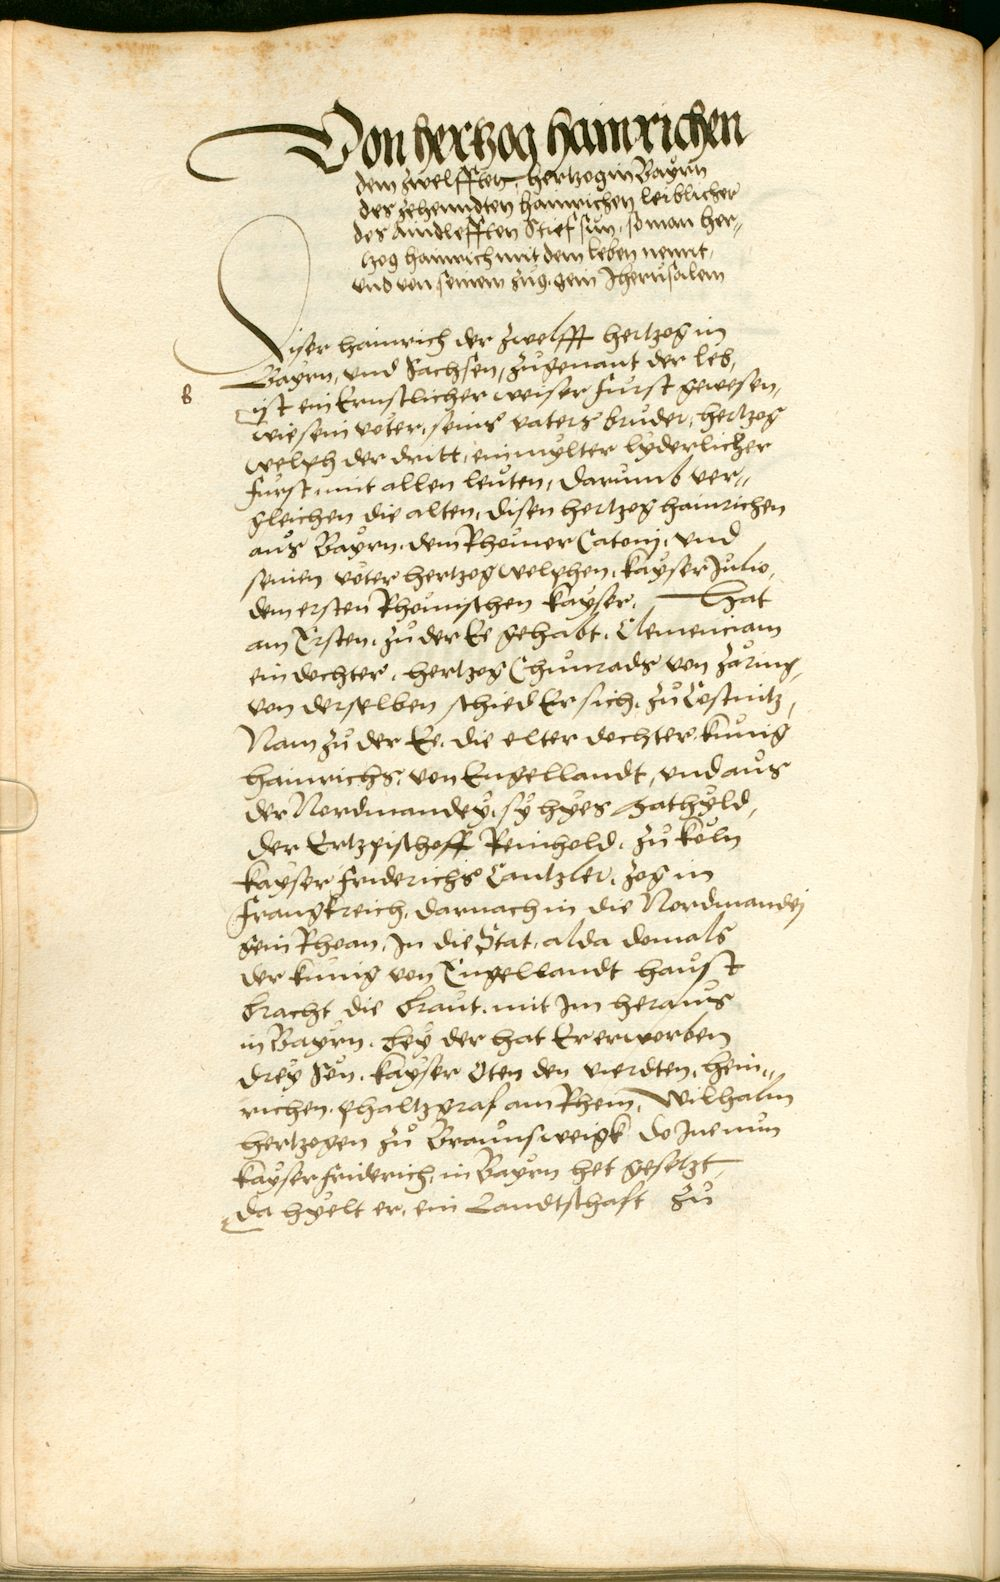 Von hertzog Hainrichen
dem zwelfften, hertzog in Bayrn
des zehenndten Hainrichen leiblicher
des Aindlefften Stiefsun, so man her„
tzog Hainrich mit dem Leben nennt,
und von seinem zug, gein Jherusalem
Diser Hainrich der zwelfft hertzog in
Bayrn, und Sachsen, zugenant der Leb,
B
ist ein Ernstlicher weiser Furst gewesen,
wie sein veter, seins vaters bruder, hertzog
Welph der dritt, ein mylter lyderlicher
Furst, mit allen leuten, Darumb ver„
gleichen die alten, disen hertzog Hainrichen
aus Bayrn, dem Rhomer Catonj, und
seinen veter hertzog Welphen, Kayser Julio,
dem ersten Rhomischen Kayser, Hat
am Ersten, zu der Ee gehabt, Clemenciam
ein dochter, hertzog Chunrads von Zaring,
von derselben schied Er sich, zu Costnitz,
Nam zu der Ee, die elter dochter kunig
Hainrichs, von Engellandt, und aus
der Nordmandey, sy hyes Mathyld,
Der Ertzpischoff Reinhold, zu Koln
Kayser Friderichs Cantzler, zog in
Frangkreich, darnach in die Nordmandej
gein Rhoan, In die Stat, alda domals
der kunig von Engellandt haust
bracht die braut, mit Im heraus
in Bayrn, bey der hat Er erworben
drey Sun, Kayser Oten den vierdten, Hein„
richen, Phaltzgraf am Rhein, Wilhalm
hertzogen zu Braunsweigk Do Jne nun
Kayser Friderich, in Bayrn het gesetzt,
da hyelt er, ein Landtschaft zu